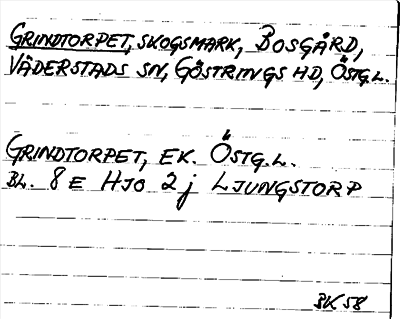 GRINDTORPET, SKOGSMARK, BOSGÅRD,
VÄDERSTADS SN, GÖSTRINGS HD, ÖSTG.L.
GRINDTORPET, EK. ÖSTG.L.
BL. 8 E HJO 2 j LJUNGSTORP
BK 58